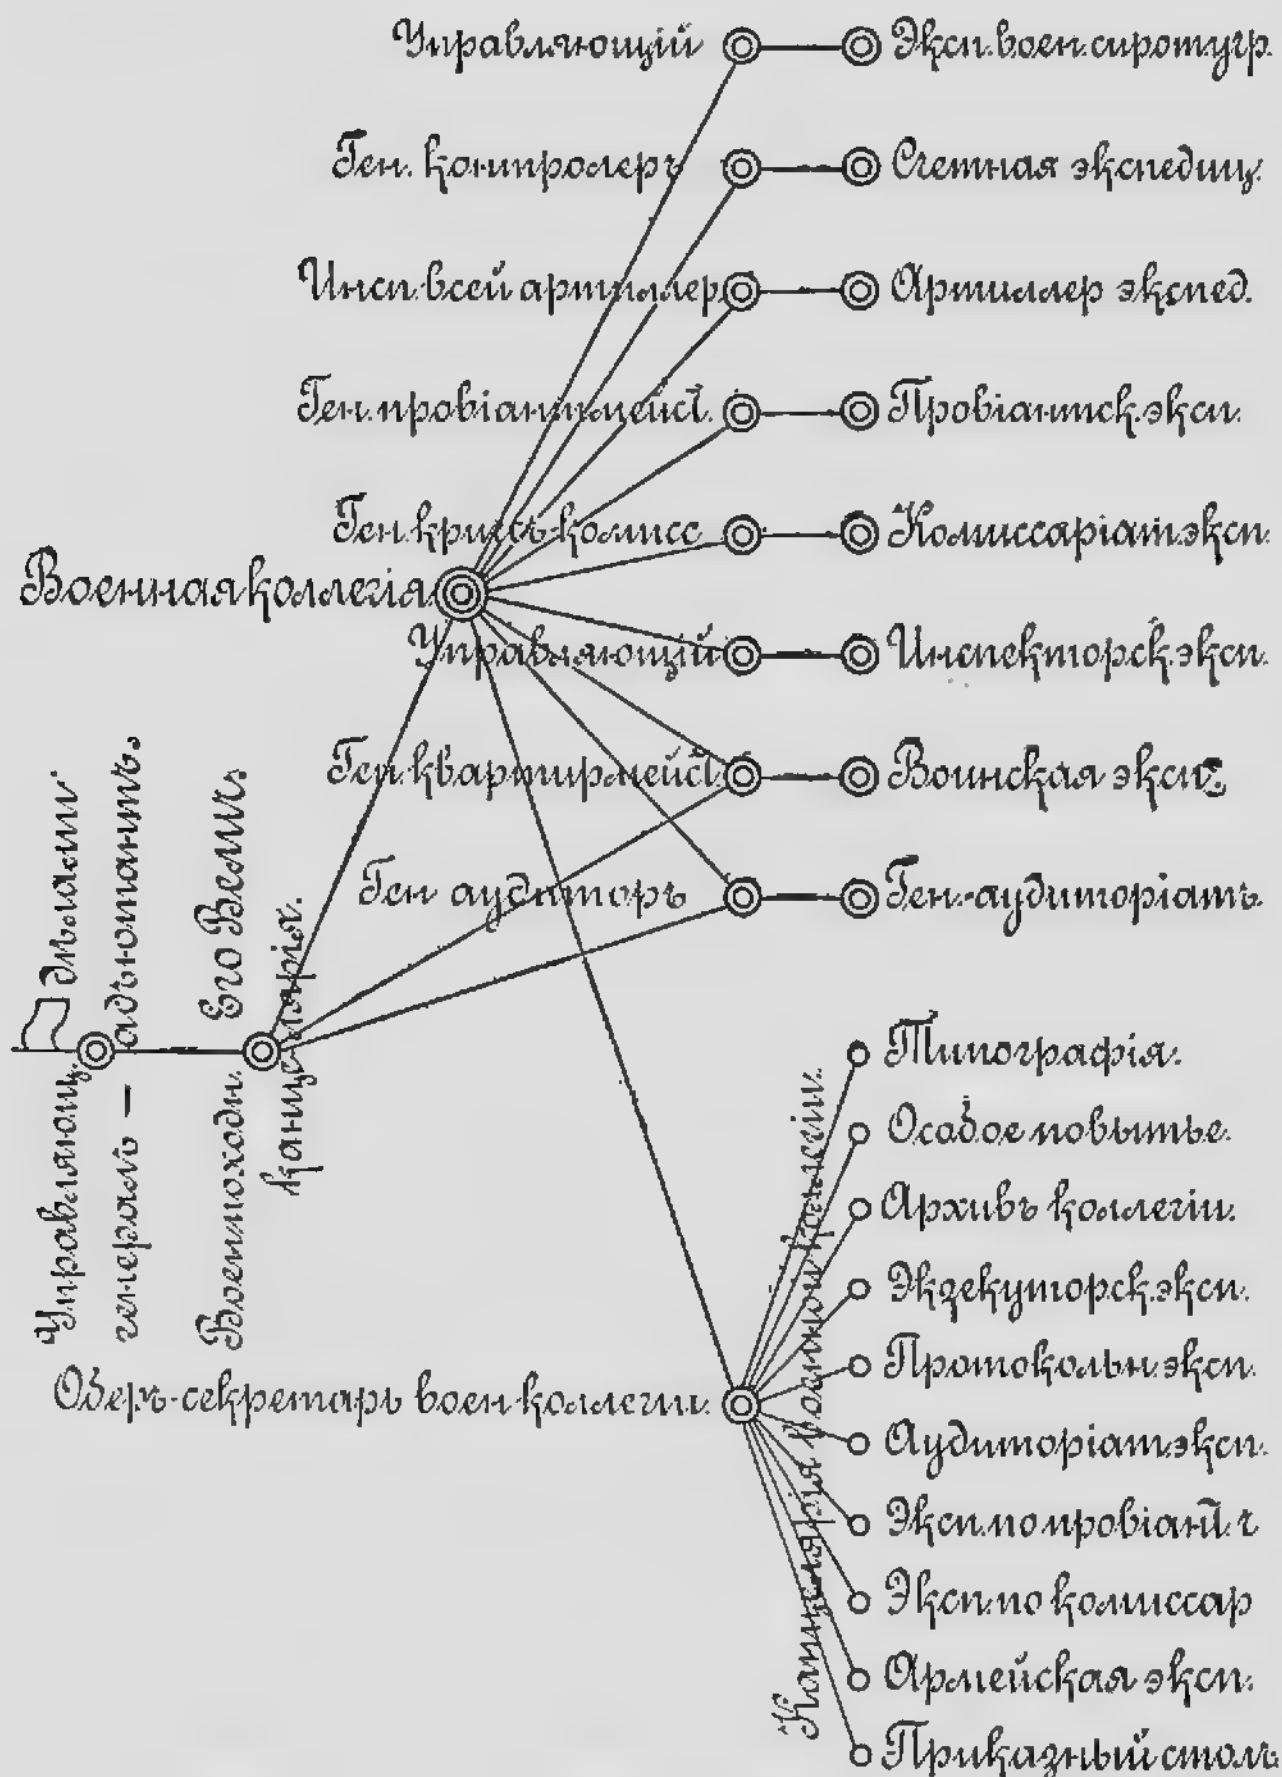 Управляющій
Эксп. воен. сирот. учр.
Ген. контролеръ
Счетная экспедиц.
Инсп. всей артиллер.
Артиллер экспед.
Ген. провіантмейст.
Провіантск. эксп.
Ген. кригсъ-комисс
Комиссаріат. эксп.
Военная коллегія
Управляющій
Инспекторск. эксп.
Ген. квартирмейст.
Воинская эксп.
Ген аудиторъ
Ген.-аудиторіатъ.
Управляющ. дѣлами
генералъ — адъютантъ
Военнопоходн. Его Велич.
канцелярія.
Типографія.
Особое повытье.
Архивъ коллегіи.
Экзекуторск. эксп.
Протокольн. эксп.
Оберъ-секретарь воен коллегіи.
Канцелярія военной коллегіи.
Аудиторіат. эксп.
Эксп. по провіант. ч
Эксп. по комиссар
Армейская эксп.
Приказный столъ